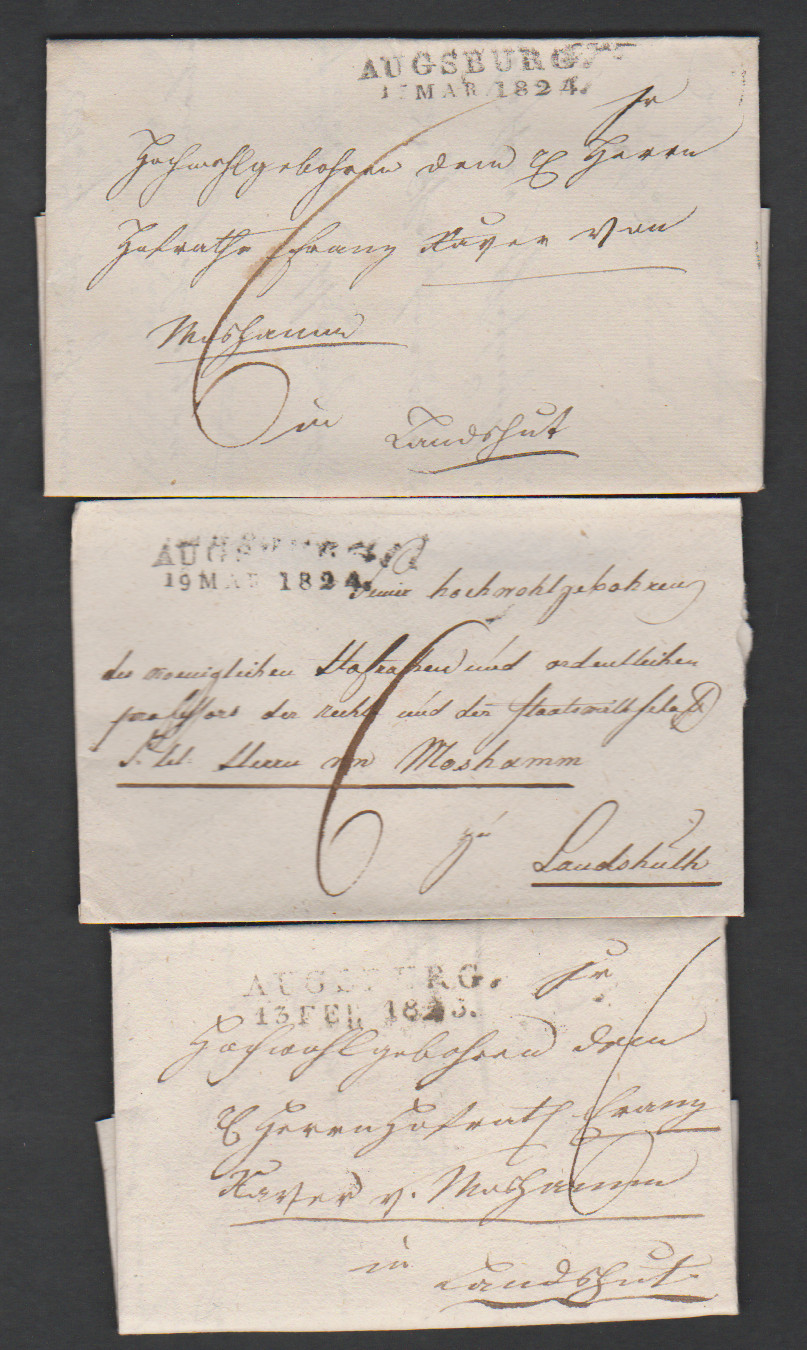 AUGSBURG.
MAR 1824.
Sr
Hochwohlgebohren dem Herrn
Hofrathe Franz Xaver von
Moshamm
6
in
Landshut
AUGSBURG
19 MAR 1824.
Seiner hochwohlgebohren
des koeniglichen Hofrathen und ordentlichen
professors der rechte und der Staatswirthschaft
S. tit. Herrn von Moshamm
6
zu
Landshuth
AUGSBURG.
13 FEB 1823.
Sr
Hochwohlgebohren dem
Herrn Hofrath Franz
Xaver v. Moshamm
6
in
Landshut